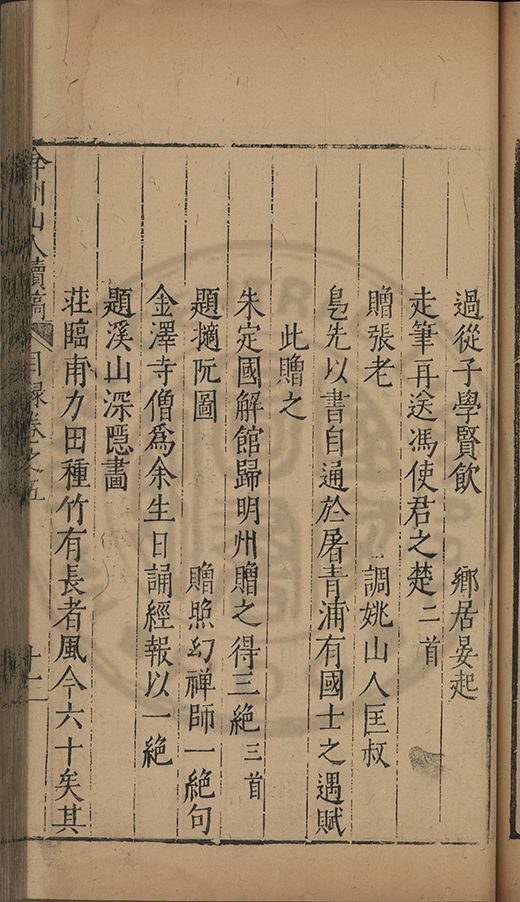 過從子學賢飲　鄉居晏起
走筆再送馮使君之楚二首
贈張老　調姚山人匡叔
先以書自通於屠青浦有國士之遇賦
此贈之
朱定國解館歸明州贈之得三絶三首
題摘阮圖　贈照幻禅師一絶句
金澤寺僧爲余生日誦經報以一絶
題溪山深隱畵
莊臨甫力田種竹有長者風今六十矣其
弇州山人續稿　目録卷之五　十二